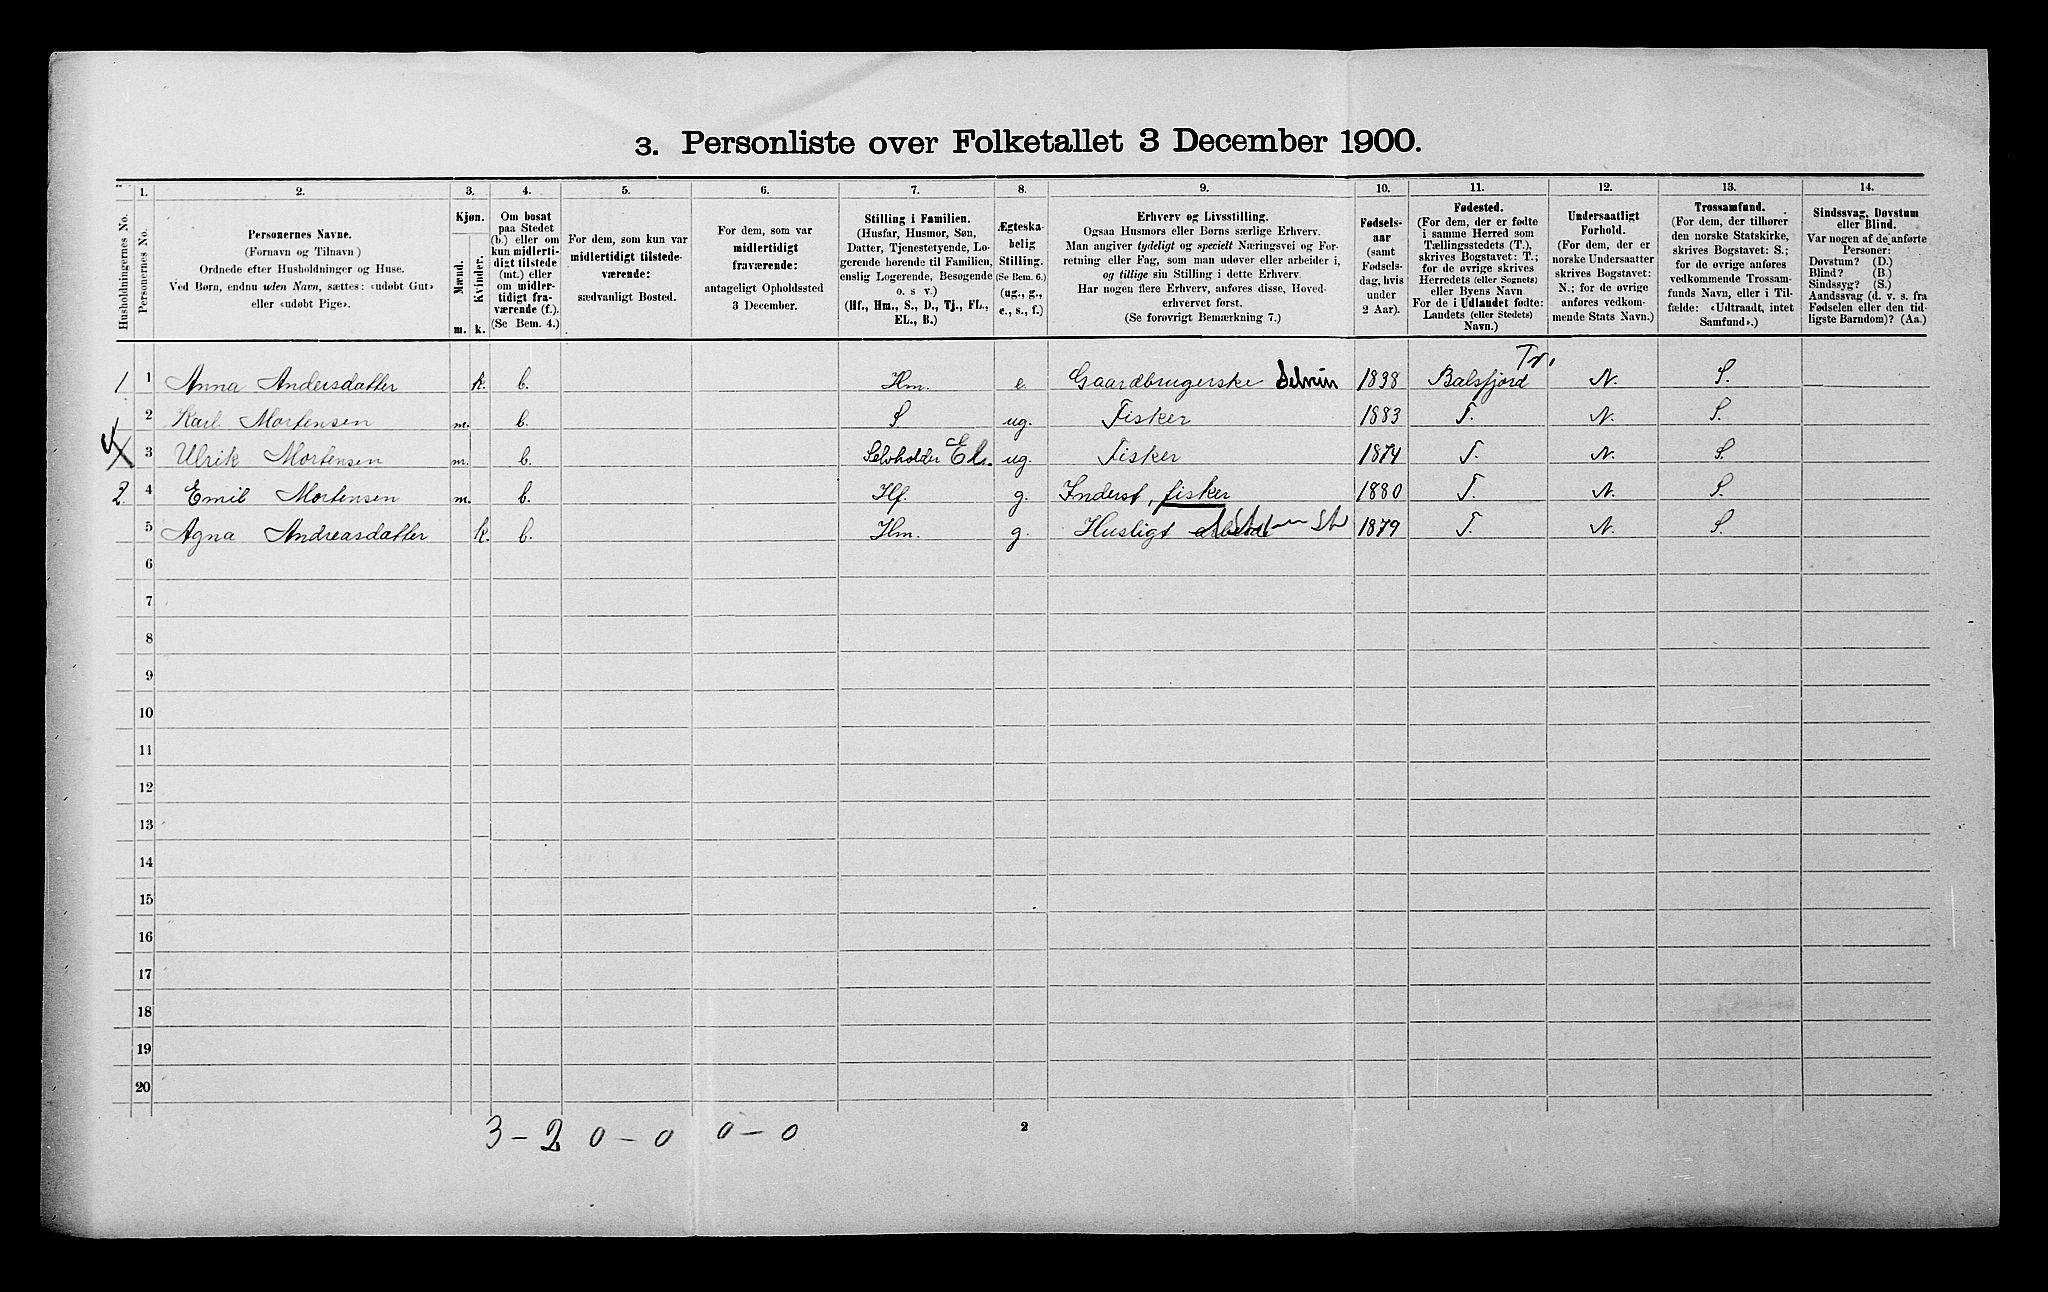 3. Personliste over Folketallet 3 December 1900.
1. 2. 3. 4. 5. 6. 7. 8. 9. 10. 11. 12. 13. 14.
Husholdningernes No.
Personernes No.
Personernes Navne.
(Fornavn og Tilnavn)
Ordnede efter Husholdninger og Huse.
Ved Børn, endnu uden Navn, sættes: «udøbt Gut»
eller «udøbt Pige».
Kjøn.
Mænd.
Kvinder.
m. k.
Om bosat
paa Stedet
(b.) eller om
kun midlerti-
digt tilstede
(mt.) eller
om midler-
tidigt fra-
værende (f.).
(Se Bem. 4.)
For dem, som kun var
midlertidigt tilstede-
værende:
sædvanligt Bosted.
For dem, som var
midlertidigt
fraværende:
antageligt Opholdssted
3 December.
Stilling i Familien.
(Husfar, Husmor, Søn,
Datter, Tjenestetyende, Lo-
gerende hørende til Familien,
enslig Logerende, Besøgende
o. s v.)
(Hf., Hm., S., D., Tj., FL.,
EL., B.)
Ægteska-
belig
Stilling.
(Se Bem. 6.)
(ug., g.,
e., s., f.)
Erhverv og Livsstilling.
Ogsaa Husmors eller Børns særlige Erhverv.
Man angiver tydeligt og specielt Næringsvei og For-
retning eller Fag, som man udøver eller arbeider i,
og tillige sin Stilling i dette Erhverv.
Har nogen flere Erhverv, anføres disse, Hoved-
erhvervet først.
(Se forøvrigt Bemærkning 7.)
Fødsels-
aar
(samt
Fødsels-
dag, hvis
under
2 Aar).
Fødested.
(For dem, der er fødte
i samme Herred som
Tællingsstedets (T.),
skrives Bogstavet: T.;
for de øvrige skrives
Herredets (eller Sognets)
eller Byens Navn
For de i Udlandet fødte:
Landets (eller Stedets)
Navn.)
Undersaatligt
Forhold.
(For dem, der er
norske Undersaatter
skrives Bogstavet:
N.; for de øvrige
anføres vedkom-
mende Stats Navn.)
Trossamfund.
(For dem, der tilhører
den norske Statskirke,
skrives Bogstavet: S.;
for de øvrige anføres
vedkommende Trossam-
funds Navn, eller i Til-
fælde: «Udtraadt, intet
Samfund».)
Sindssvag, Døvstum
eller Blind.
Var nogen af de anførte
Personer:
Døvstum? (D.)
Blind? (B.)
Sindssyg? (S.)
Aandssvag (d. v. s. fra
Fødselen eller den tid-
ligste Barndom)? (Aa.)
1 1 Anna Andersdatter k. b. Hm. e. Gaardbrugerske Selvein 1838 Balsfjord Tr. N. S.
2 Karl Mortensen m. b. S ug. Fisker 1883 T. N. S.
3 Ulrik Mortensen m. b. Selvholder El. ug. Fisker 1874 T. N. S.
2 4 Emil Mortensen m. b. Hf. g. Inderst, fisker 1880 T. N. S.
5 Agna Andreasdatter k. b. Hm. g. Husligt arbeide 1879 T. N. S.
6
7
8
9
10
11
12
13
14
15
16
17
18
19
20
3 - 2 0 - 0 0 - 0
2